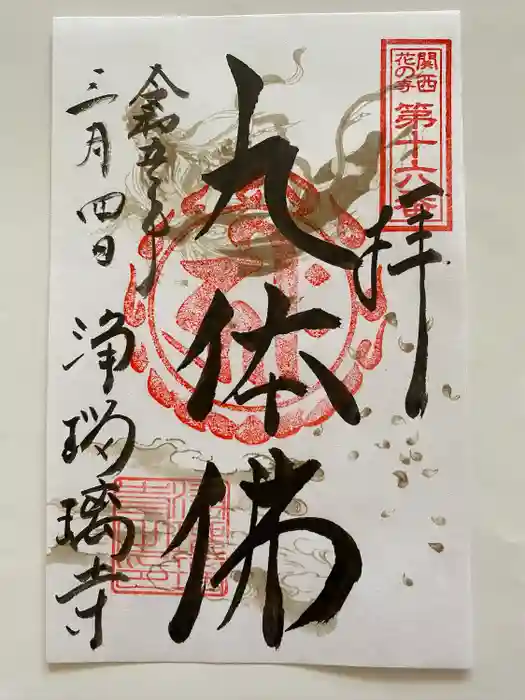 関西
花の寺
第十六番
拝
九体佛
令和五年
三月四日
浄瑠璃寺